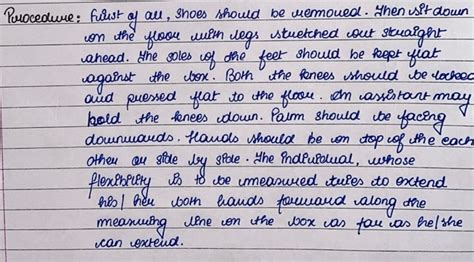 Procedure: First of all, shoes should be removed. Then sit down
on the floor with legs stretched out straight
ahead. The soles of the feet should be kept flat
against the box. Both the knees should be locked
and pressed flat to the floor. An assistant may
hold the knees down. Palm should be facing
downwards. Hands should be on top of the each
other or side by side. The individual, whose
flexibility is to be measured tries to extend
his/ her both hands forward along the
measuring line on the box as far as he/she
can extend.